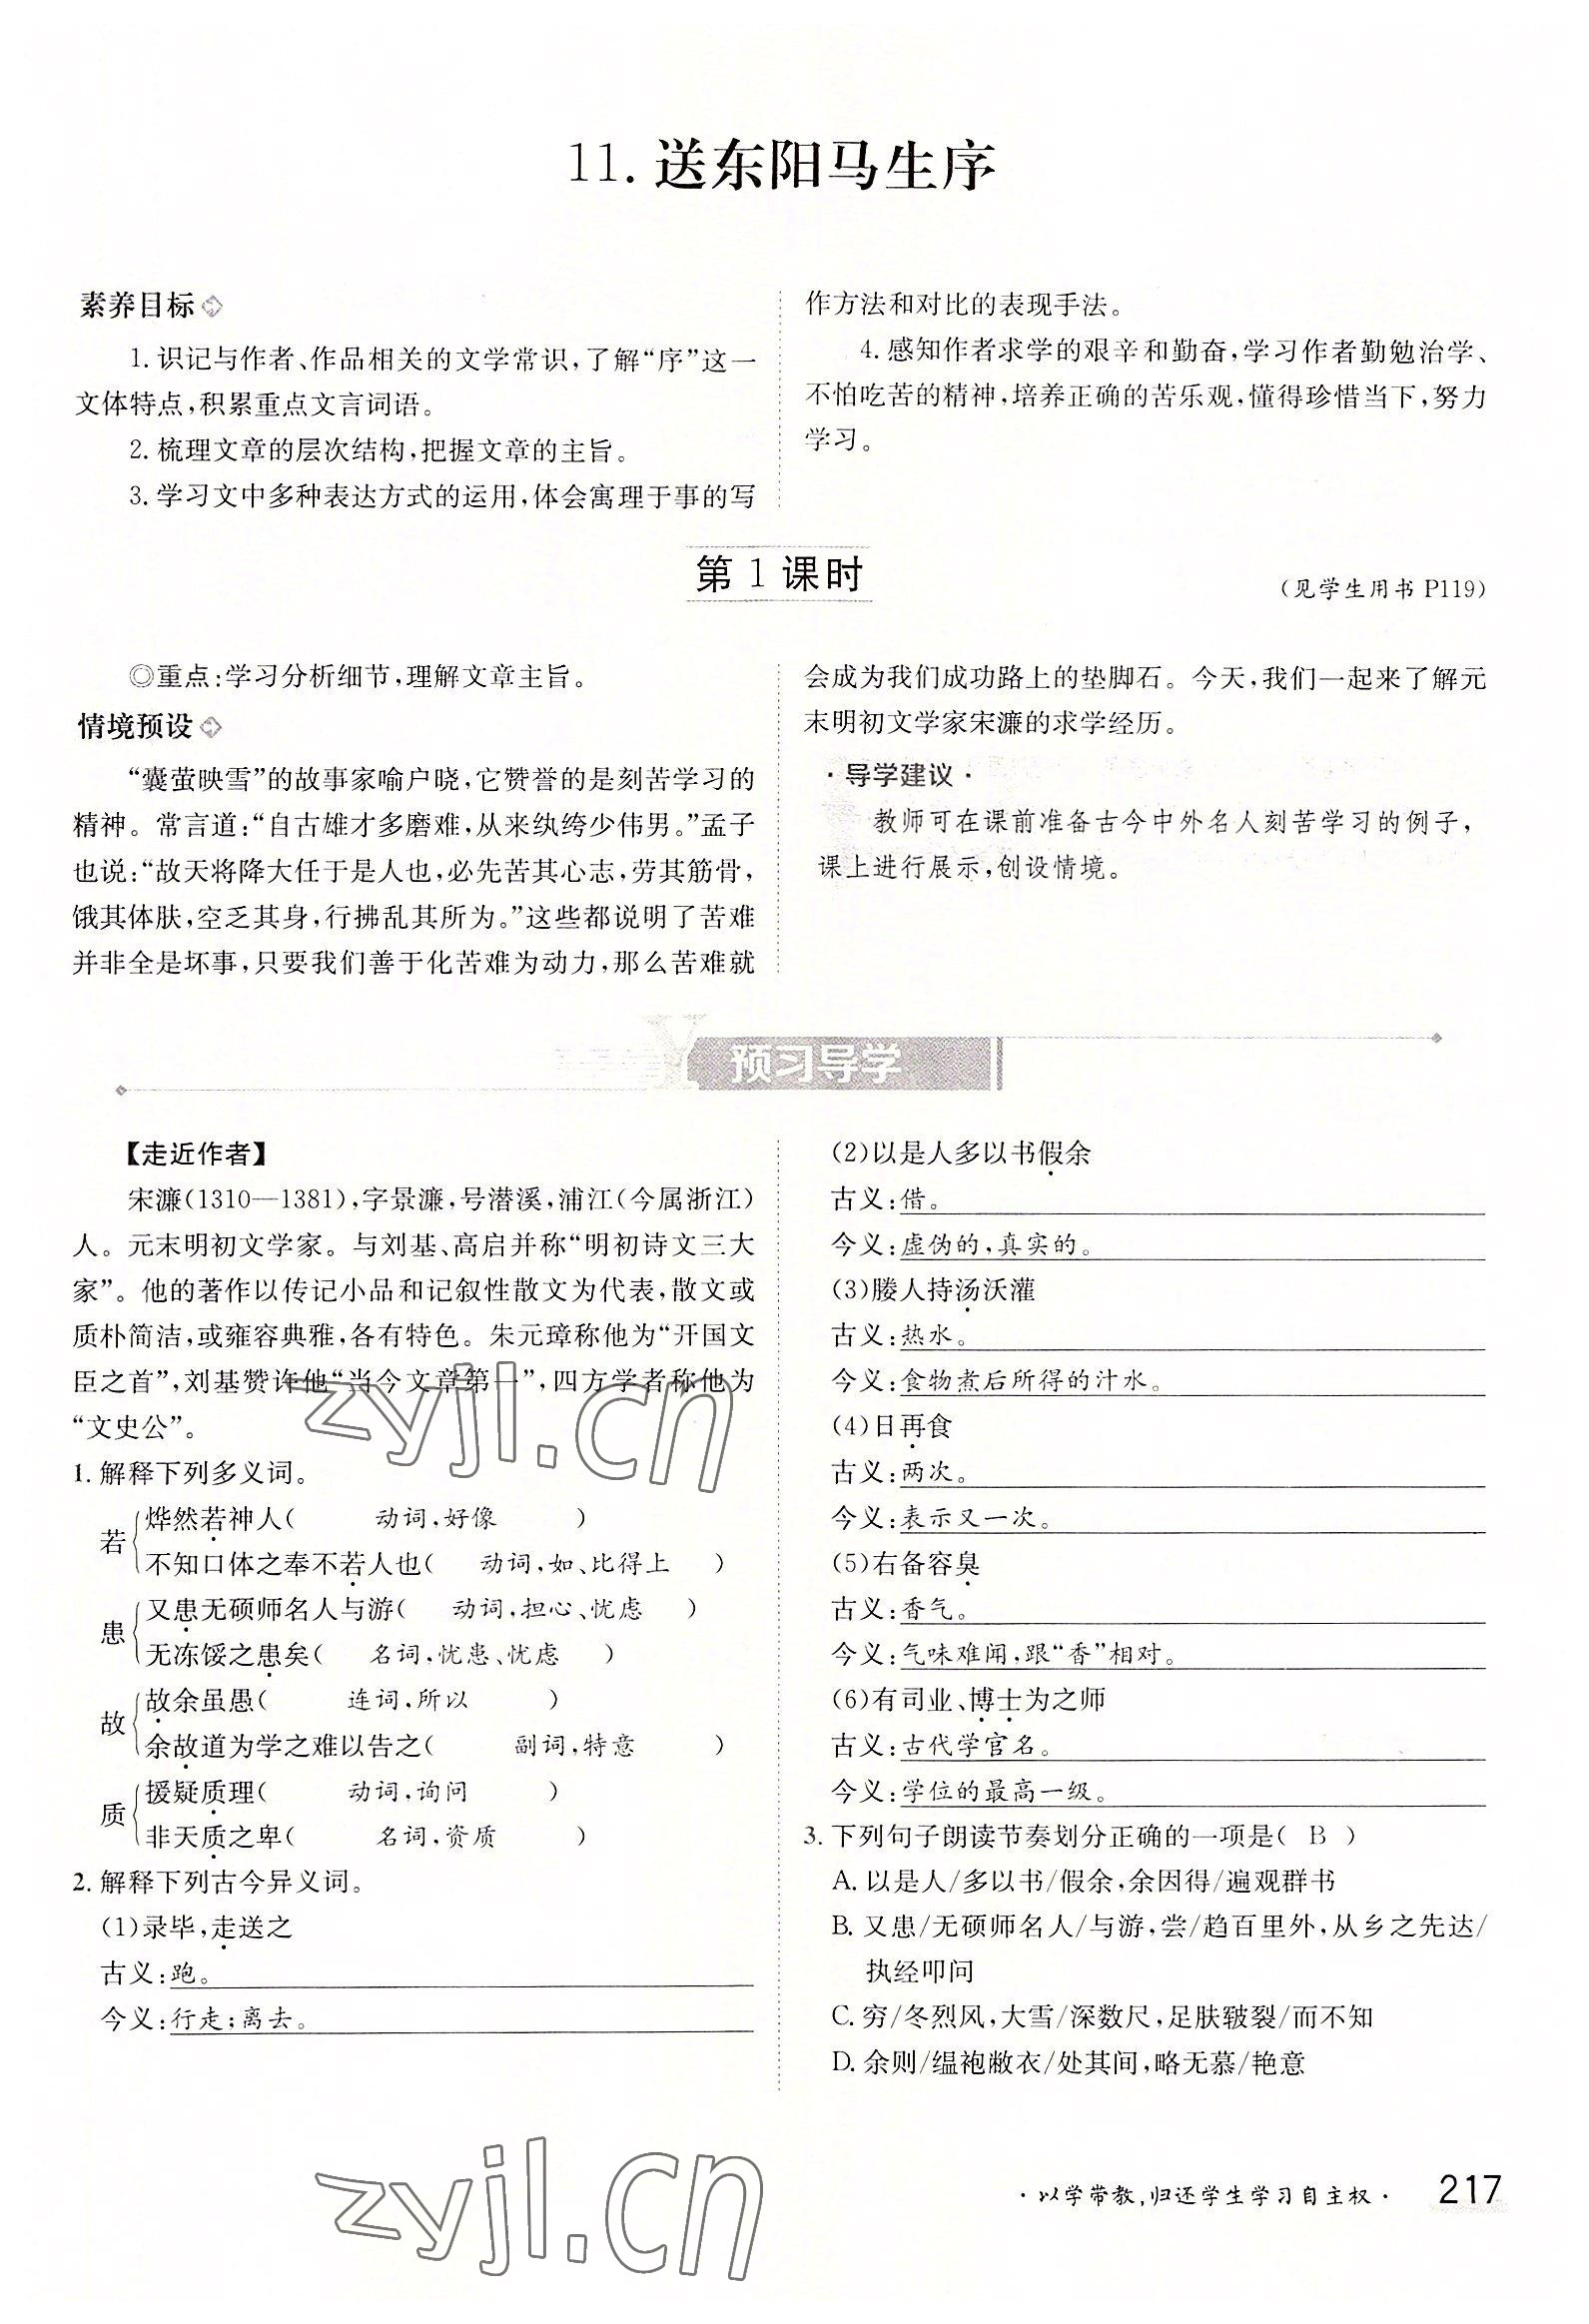 11. 送东阳马生序
素养目标
1. 识记与作者、作品相关的文学常识,了解“序”这一
文体特点,积累重点文言词语。
2. 梳理文章的层次结构,把握文章的主旨。
3. 学习文中多种表达方式的运用,体会寓理于事的写
作方法和对比的表现手法。
4. 感知作者求学的艰辛和勤奋,学习作者勤勉治学、
不怕吃苦的精神,培养正确的苦乐观,懂得珍惜当下,努力
学习。
第 1 课时
(见学生用书 P119)
◎重点:学习分析细节,理解文章主旨。
情境预设
“囊萤映雪”的故事家喻户晓,它赞誉的是刻苦学习的
精神。常言道:“自古雄才多磨难,从来纨绔少伟男。”孟子
也说:“故天将降大任于是人也,必先苦其心志,劳其筋骨,
饿其体肤,空乏其身,行拂乱其所为。”这些都说明了苦难
并非全是坏事,只要我们善于化苦难为动力,那么苦难就
会成为我们成功路上的垫脚石。今天,我们一起来了解元
末明初文学家宋濂的求学经历。
·导学建议·
教师可在课前准备古今中外名人刻苦学习的例子,
课上进行展示,创设情境。
预习导学
【走近作者】
宋濂(1310—1381),字景濂,号潜溪,浦江(今属浙江)
人。元末明初文学家。与刘基、高启并称“明初诗文三大
家”。他的著作以传记小品和记叙性散文为代表,散文或
质朴简洁,或雍容典雅,各有特色。朱元璋称他为“开国文
臣之首”,刘基赞许他“当今文章第一”,四方学者称他为
“文史公”。
1. 解释下列多义词。
若
烨然若神人( 动词,好像 )
不知口体之奉不若人也( 动词,如、比得上 )
患
又患无硕师名人与游( 动词,担心、忧虑 )
无冻馁之患矣( 名词,忧患、忧虑 )
故
故余虽愚( 连词,所以 )
余故道为学之难以告之( 副词,特意 )
质
援疑质理( 动词,询问 )
非天质之卑( 名词,资质 )
2. 解释下列古今异义词。
(1)录毕,走送之
古义:跑。
今义:行走;离去。
(2)以是人多以书假余
古义:借。
今义:虚伪的,真实的。
(3)媵人持汤沃灌
古义:热水。
今义:食物煮后所得的汁水。
(4)日再食
古义:两次。
今义:表示又一次。
(5)右备容臭
古义:香气。
今义:气味难闻,跟“香”相对。
(6)有司业、博士为之师
古义:古代学官名。
今义:学位的最高一级。
3. 下列句子朗读节奏划分正确的一项是( B )
A. 以是人/多以书/假余,余因得/遍观群书
B. 又患/无硕师名人/与游,尝/趋百里外,从乡之先达/
执经叩问
C. 穷/冬烈风,大雪/深数尺,足肤皲裂/而不知
D. 余则/缊袍敝衣/处其间,略无慕/艳意
zyjl.cn
zyjl.cn
·以学带教,归还学生学习自主权· 217